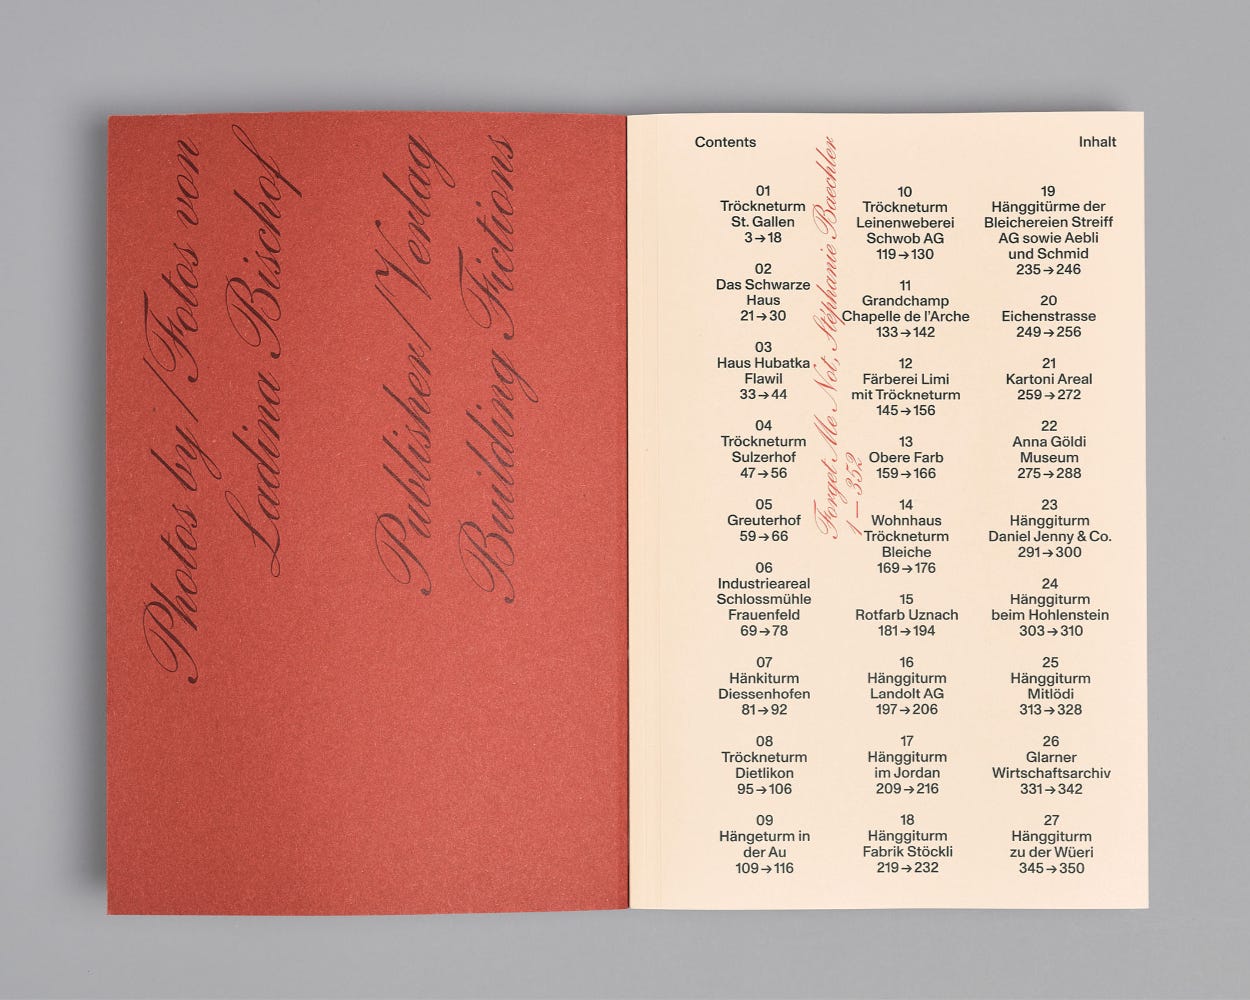 Photos by / Fotos von
Ladina Bischof
Publisher / Verlag
Building Fictions
Contents
Inhalt
Forget Me Not, Stéphanie Baechler
1 — 352
01
Tröckneturm
St. Gallen
3→18
02
Das Schwarze
Haus
21→30
03
Haus Hubatka
Flawil
33→44
04
Tröckneturm
Sulzerhof
47→56
05
Greuterhof
59→66
06
Industrieareal
Schlossmühle
Frauenfeld
69→78
07
Hänkiturm
Diessenhofen
81→92
08
Tröckneturm
Dietlikon
95→106
09
Hängeturm in
der Au
109→116
10
Tröckneturm
Leinenweberei
Schwob AG
119→130
11
Grandchamp
Chapelle de l'Arche
133→142
12
Färberei Limi
mit Tröckneturm
145→156
13
Obere Farb
159→166
14
Wohnhaus
Tröckneturm
Bleiche
169→176
15
Rotfarb Uznach
181→194
16
Hänggiturm
Landolt AG
197→206
17
Hänggiturm
im Jordan
209→216
18
Hänggiturm
Fabrik Stöckli
219→232
19
Hänggitürme der
Bleichereien Streiff
AG sowie Aebli
und Schmid
235→246
20
Eichenstrasse
249→256
21
Kartoni Areal
259→272
22
Anna Göldi
Museum
275→288
23
Hänggiturm
Daniel Jenny & Co.
291→300
24
Hänggiturm
beim Hohlenstein
303→310
25
Hänggiturm
Mitlödi
313→328
26
Glarner
Wirtschaftsarchiv
331→342
27
Hänggiturm
zu der Wüeri
345→350